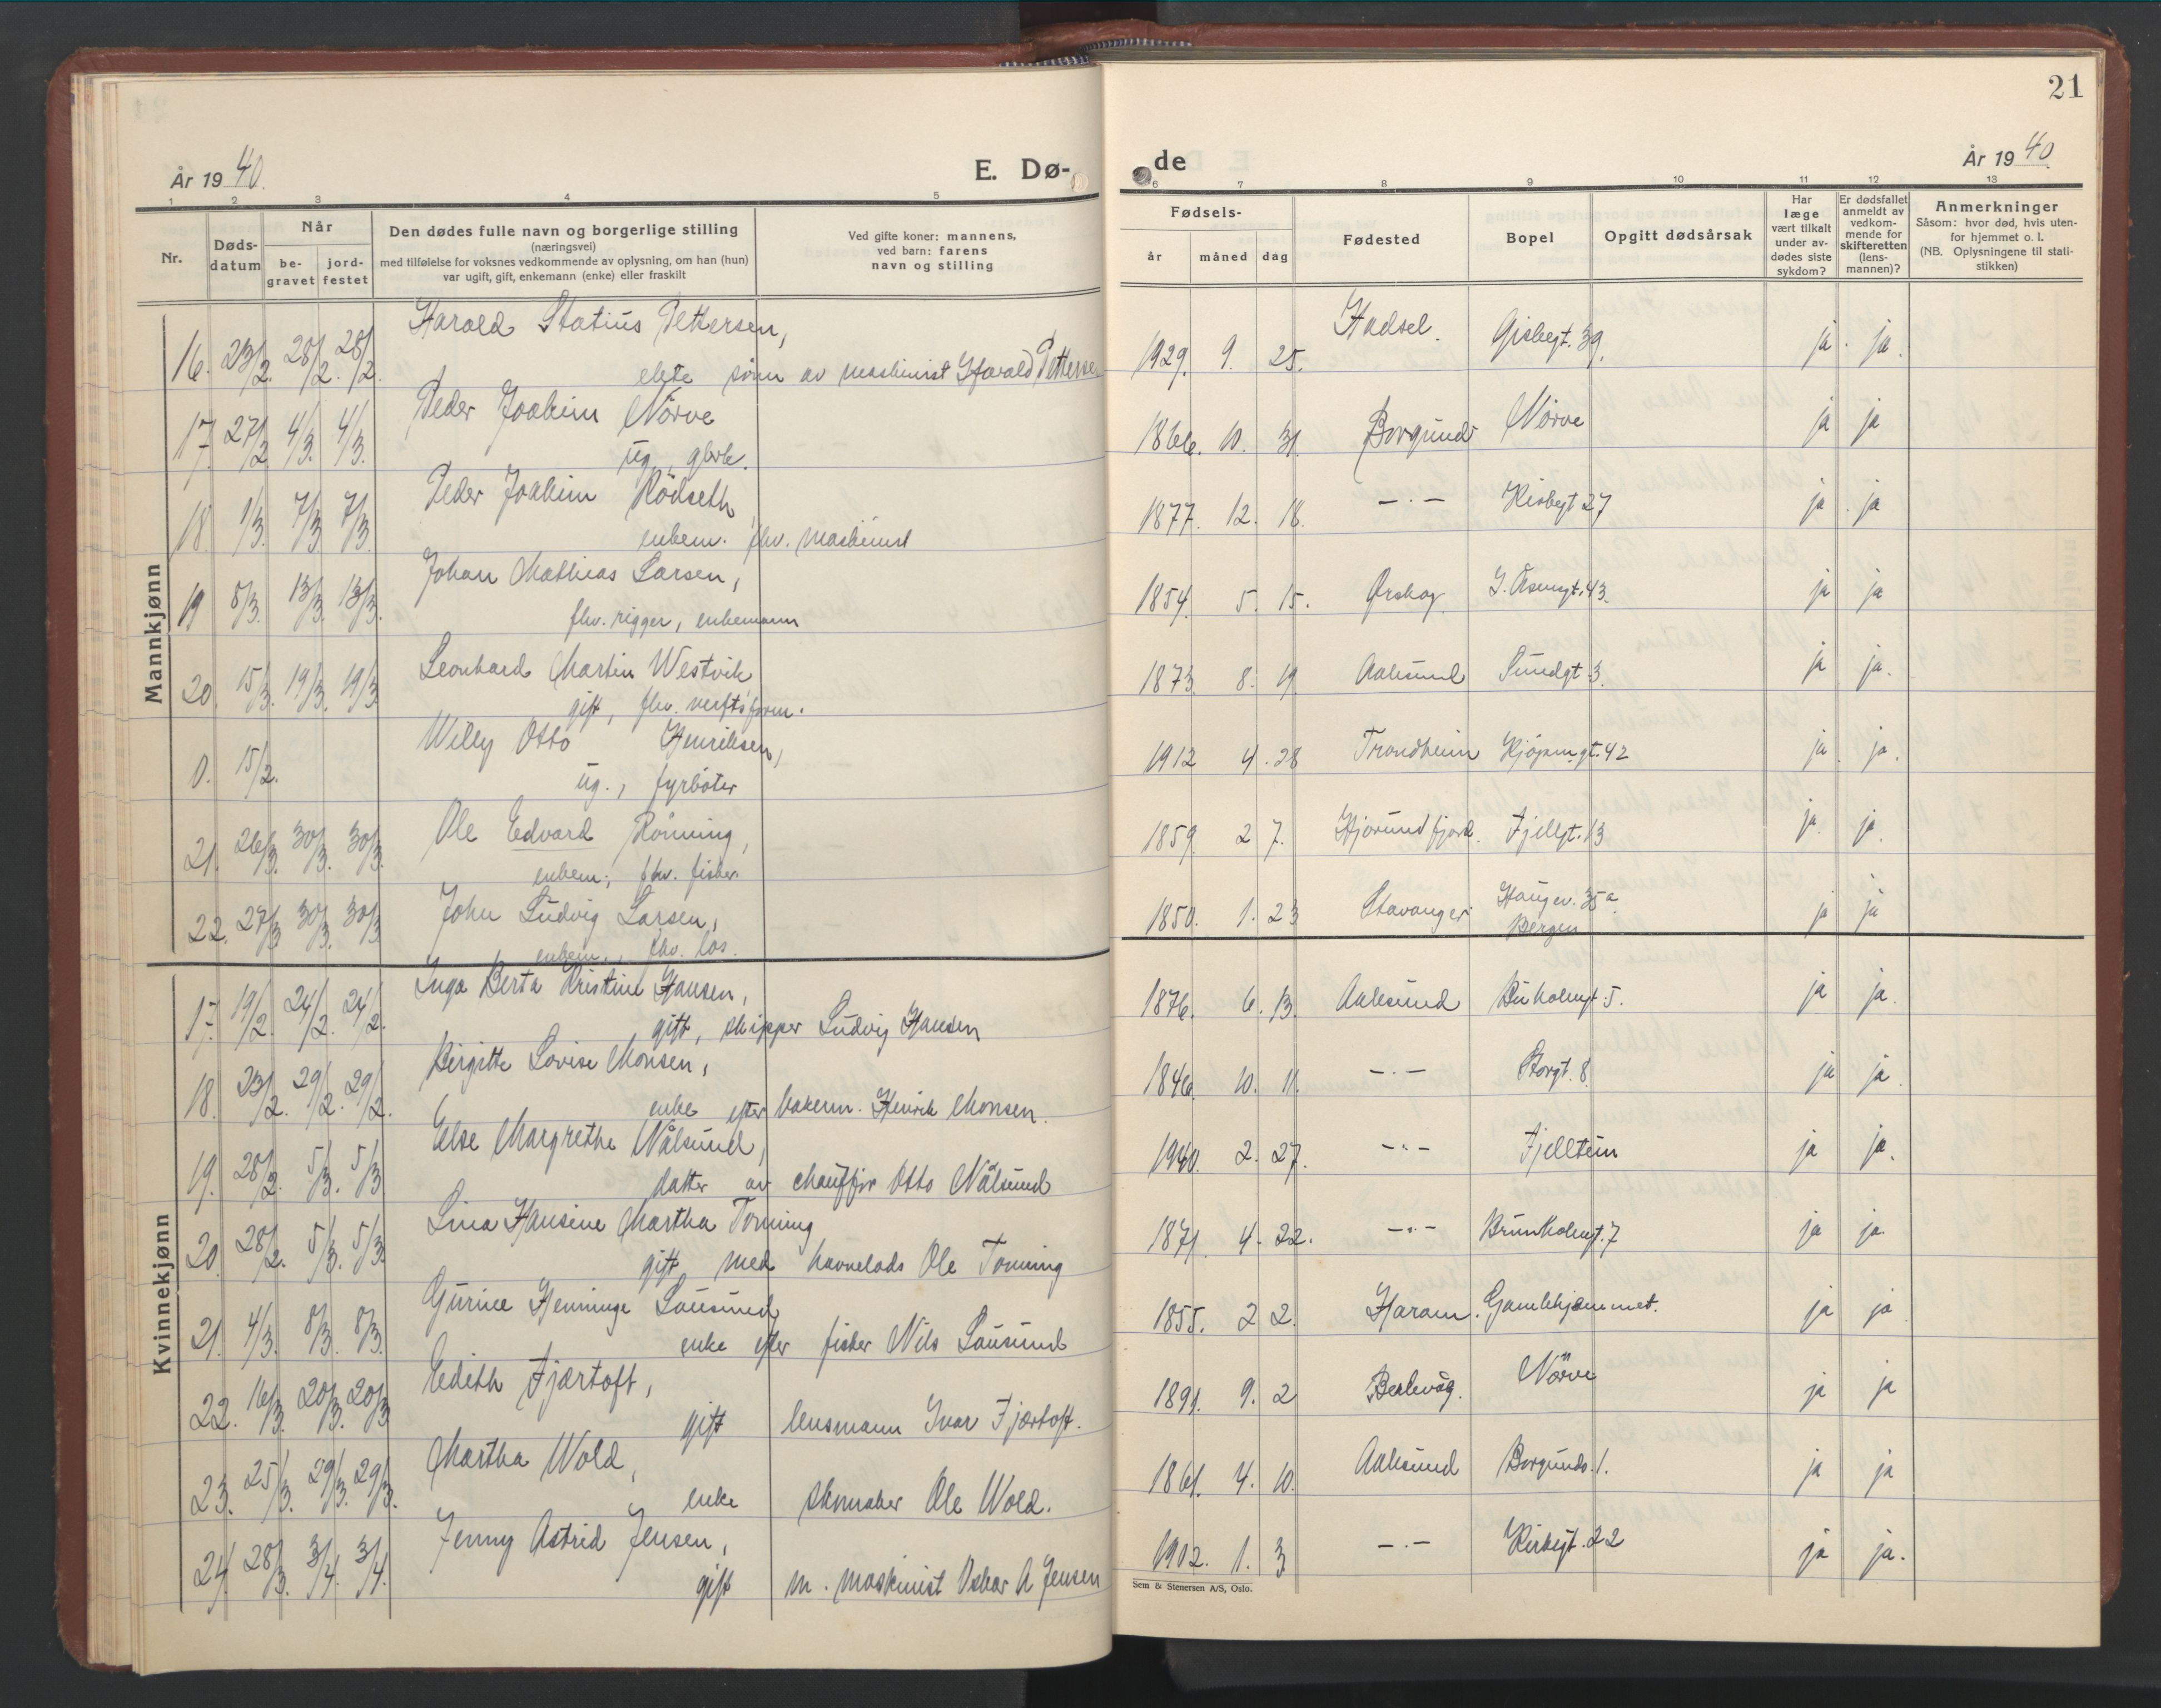 21
År 1940.
E. Dø-
de
År 1940.
1 2 3 4 5
6 7 8 9 10 11 12 13
Nr.
Døds-
datum
Når
be-
gravet
jord-
festet
Den dødes fulle navn og borgerlige stilling
(næringsvei)
med tilføielse for voksnes vedkommende av oplysning, om han (hun)
var ugift, gift, enkemann (enke) eller fraskilt
Ved gifte koner: mannens,
ved barn: farens
navn og stilling
Fødsels-
år måned dag
Fødested
Bopel
Opgitt dødsårsak
Har
læge
vært tilkalt
under av-
dødes siste
sykdom?
Er dødsfallet
anmeldt av
vedkom-
mende for
skifteretten
(lens-
mannen)?
Anmerkninger
Såsom: hvor død, hvis uten-
for hjemmet o. l.
(NB. Oplysningene til stati-
stikken)
Mannkjønn
Harald Statius Pettersen,
16. 23/2. 28/2. 28/2. ekte sønn av maskinist Harald Pettersen 1929. 9. 25. Hadsel. Gisbegt. 39. ja. ja.
Peder Joakim Nörve
17. 27/2 4/3. 4/3. ug., gbrb. 1866. 10. 31. Borgund Nörve ja ja
Peder Joakim Rödseth
18. 1/3. 7/3 7/3. enkem. fhv. maskinist 1877. 12. 18. —.— Kirkegt 27 ja. ja
Johan Mathias Larsen,
19 8/3. 13/3. 13/3. fhv. rigger, enkemann 1854. 5. 15. Ørskog I. Åsensgt. 43. ja ja
Leonhard Martin Westvik
20. 15/3. 19/3. 19/3 gift, fhv. verftsform. 1873. 8. 19 Aalesund Sundgt 3. ja ja.
Willy Otto Henriksen,
0. 15/2. ug., fyrböter 1912 4. 28 Trondheim Kjöpm.gt. 42 ja. ja.
Ole Edvard Rönning,
21. 26/3. 30/3. 30/3. enkem., fhv. fisker. 1859. 2 7. Hjörundfjord. Fjellgt. 13 ja. ja.
John Ludvig Larsen,
22. 27/3 30/3. 30/3 enkem., fhv. los. 1850. 1. 23 Stavanger Haugev. 35a
Bergen ja ja
Kvinnekjønn
Inga Berta Kristine Hansen,
17. 19/2. 24/2. 24/2. gift, skipper Ludvig Hansen 1876. 6. 13. Aalesund Buholmgt 5. ja ja.
Birgitte Lovise Monsen,
18. 23/2. 29/2. 29/2. enke efter bakerm. Henrik Monsen. 1846. 10. 11. —.— Storgt. 8. ja ja.
Else Margrethe Nålsund,
19. 28/2. 5/3. 5/3 datter av chauffør Otto Nålsund 1940. 2. 27. —.— Fjelltun ja ja.
Lina Hansine Martha Tonning
20. 28/2. 5/3. 5/3. gift med havnelods Ole Tonning 1871. 4. 22. —.— Brunholmgt. 7 ja ja.
Gurine Henninge Lausund,
21. 4/3. 8/3. 8/3. enke efter fisker Nils Lausund 1855. 2 2. Haram. Gamlehjemmet. ja ja
Edith Fjærtoft,
22. 16/3. 20/3. 20/3 gift lensmann Ivar Fjærtoft. 1891. 9. 2 Berlevåg. Nörve ja ja
Martha Wold,
23. 25/3. 29/3. 29/3. enke skomaker Ole Wold. 1861. 4. 10. Aalesund Borgundv. 1. ja ja
Jenny Astrid Jensen,
24. 28/3. 3/4. 3/4. gift m. maskinist Oskar A Jensen 1902. 1. 3 —.— Kirkegt. 22 ja ja.
Sem & Stenersen A/S, Oslo.